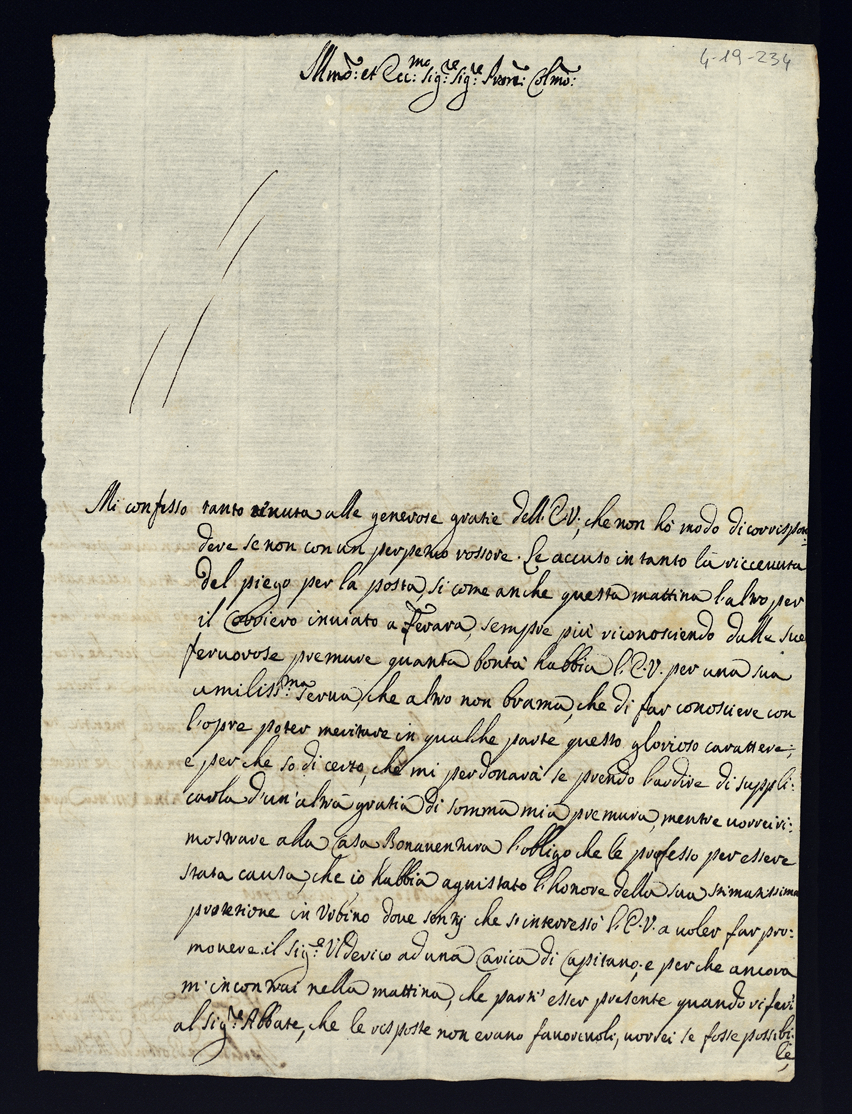 4-19-234
Ill.mo: et Ecc:mo Sig:re Sig:re Pron: Colmo:
Mi confesso tanto tenuta alle generose gratie dell'E.V:, che non hò modo di corrispon=
dere se non con un perpetuo rossore. Le accuso in tanto la riccevuta
del piego per la posta, si come anche questa mattina l'altro per
il Corriero inuiato a Ferara, sempre più riconosciendo dalle sue
feruorose premure quanta bontà habbia l'E.V. per una sua
umiliss.ma serua, che altro non brama, che di far conosciere con
l'opre poter meritare in qualche parte questo glorioso carattere;
e perche so di certo, che mi perdonarà se prendo l'ardire di suppli:
carla d'un'altra gratia di somma mia premura, mentre uorrei ri:
mostrare alla Casa Bonauentura l'obligo che le professo per essere
stata causa, che io habbia aquistato l'honore della sua stimatissima
protetione in Urbino doue sentij che s'interressò l'E.V. a uoler far pro:
mouere il Sig.e Vlderico ad una Carica di Capitano; e perche ancora
m'incontrai nella mattina, che partì esser presente quando riferì
al Sig.re Abbate, che le risposte non erano fauoreuoli, uorrei se fosse possibi:
le,